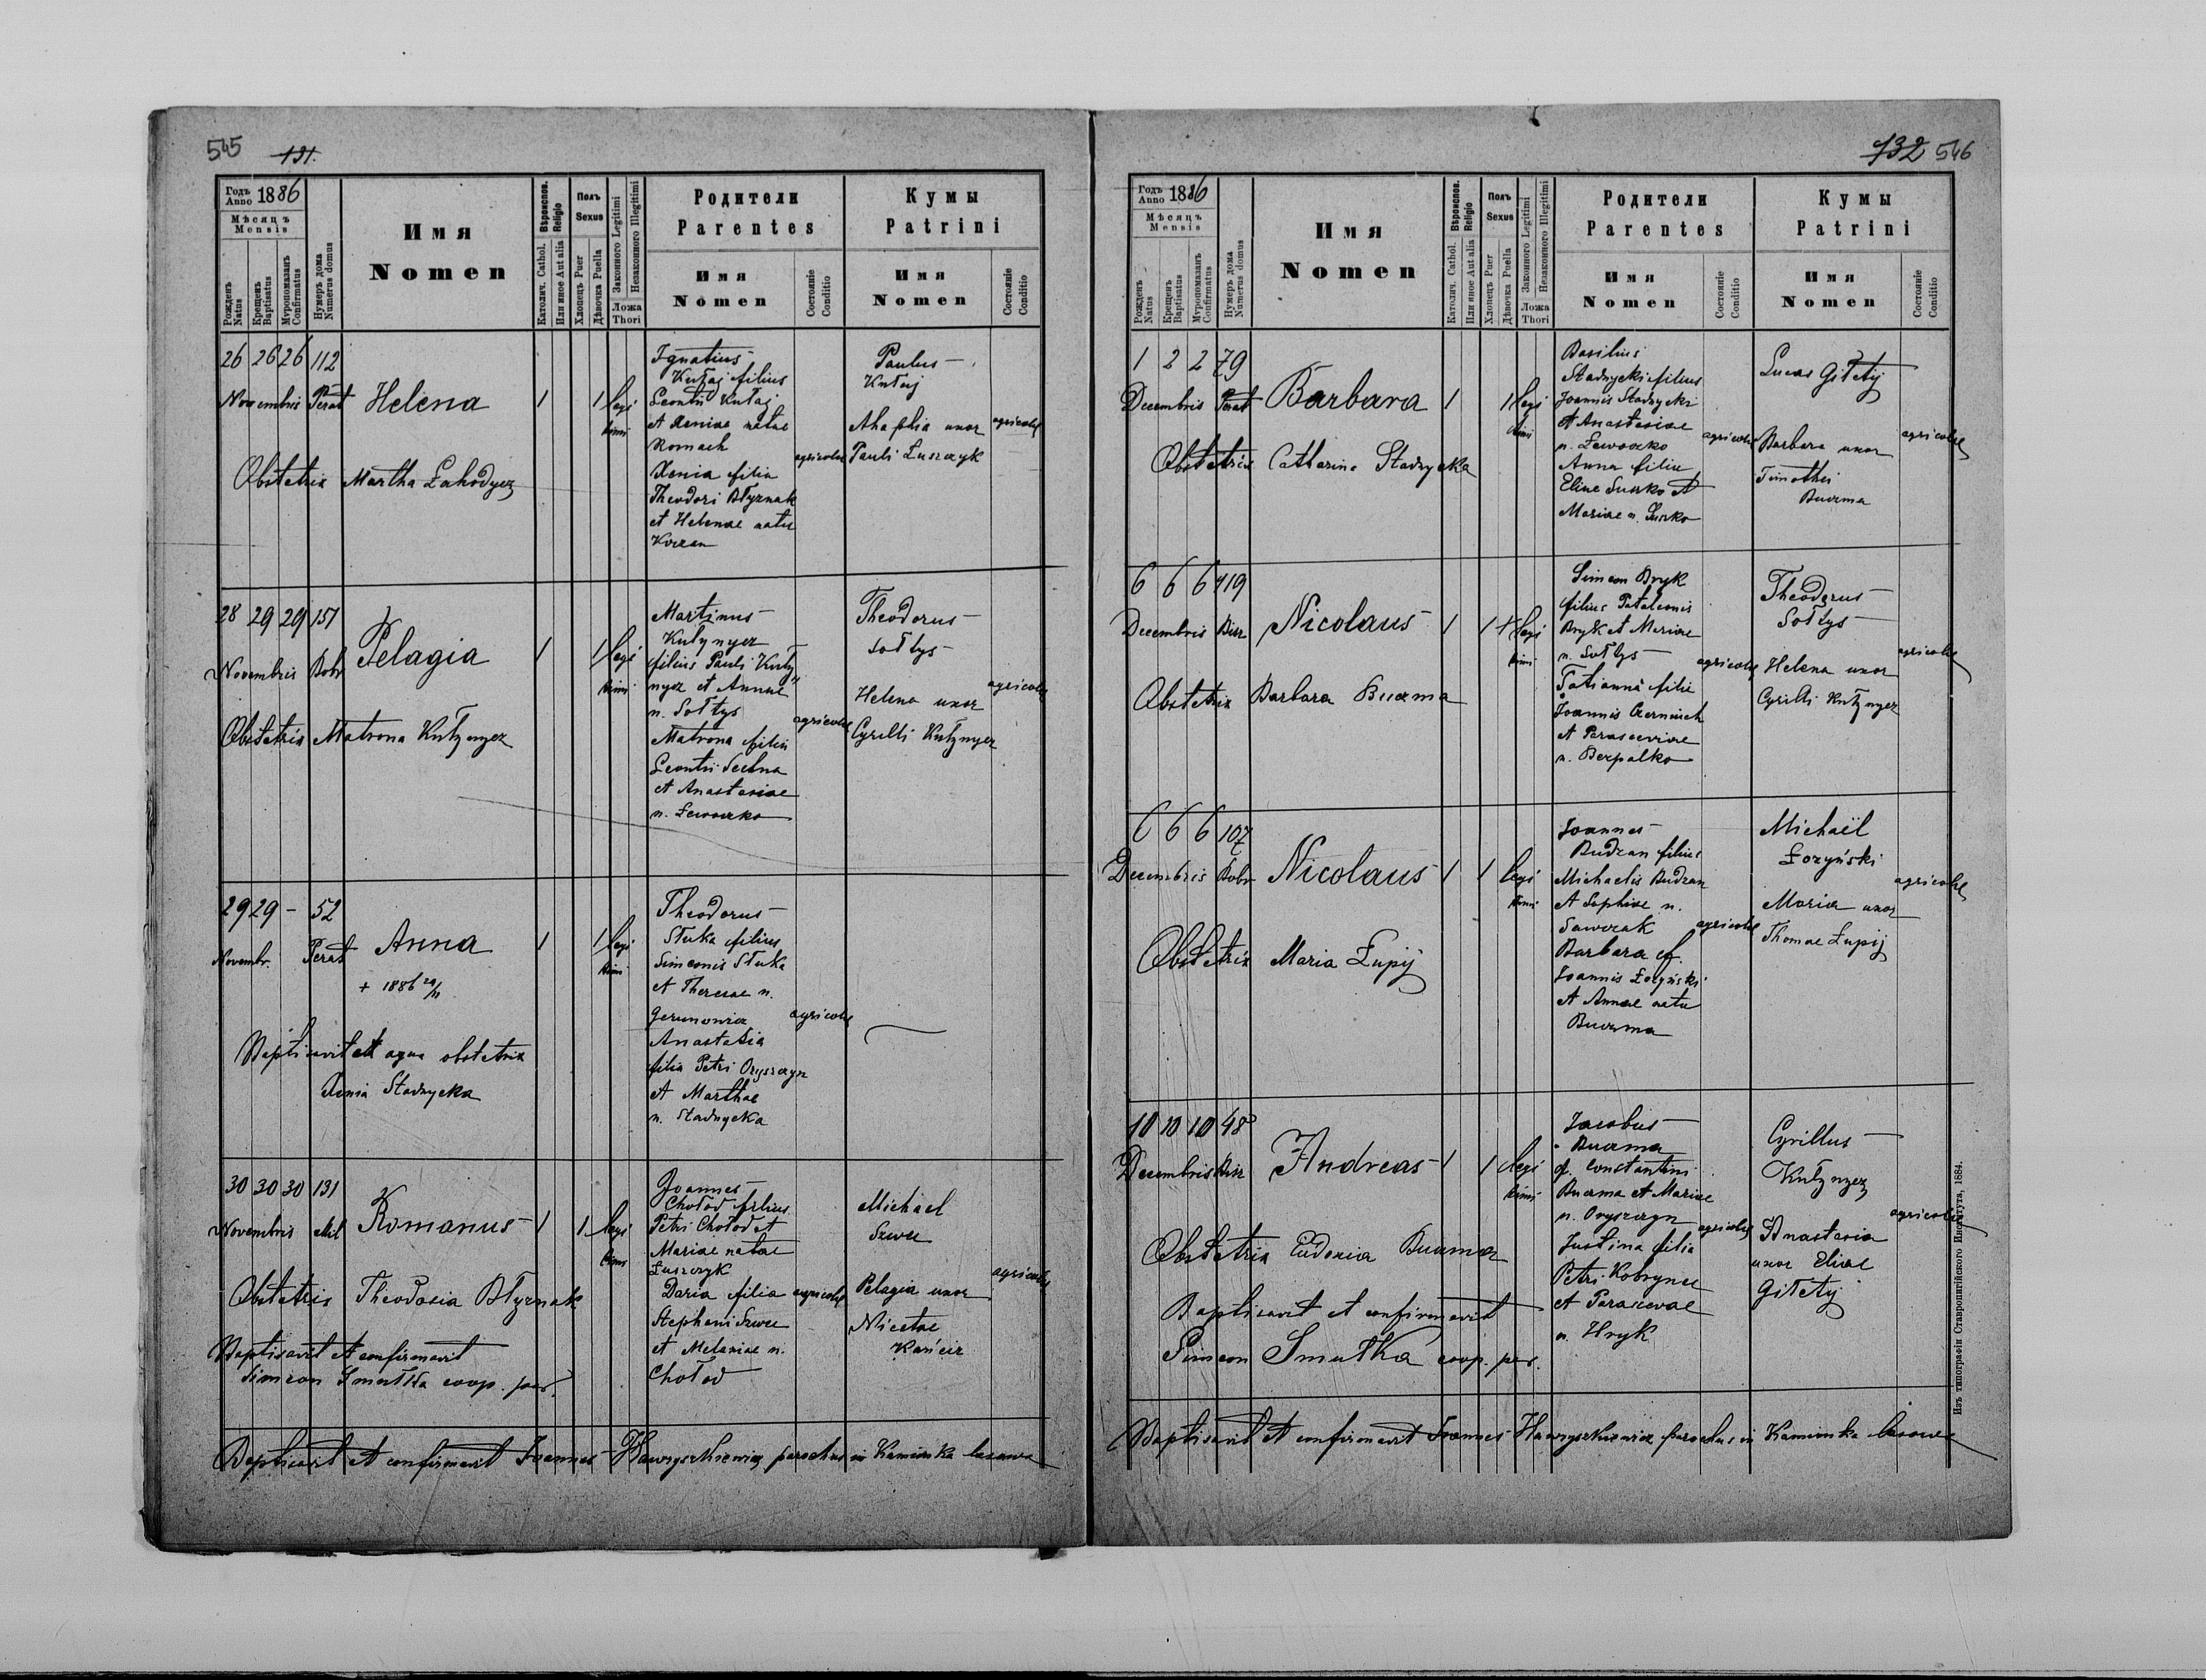 545 131.
Годъ Anno 1886
Мѣсяцъ
Mensis
Рожденъ Natus
Крещенъ Baptisatus
Муропомазанъ Confirmatus
Нумеръ дома Numerus domus
Имя
Nomen
Вѣроиспов. Religio
Католич. Cathol.
Или иное Aut alia
Полъ
Sexus
Хлопецъ Puer
Дѣвочка Puella
Законного Legitimi
Незаконного Illegitimi
Ложа
Thori
Родители
Parentes
Имя
Nomen
Состояніе
Conditio
Кумы
Patrini
Имя
Nomen
Состояніе
Conditio
26 26 26 112
Novembris Perat Helena 1 1 legi
timi
Obstetrix Martha Łahodycz
Ignatius
Kułaj filius
Leontii Kułaj
et Xeniae natae
Romach
Xenia filia
Theodori Błyznak
et Helenae natu
agricolae
Paulus
Kułaj
Ahaphia uxor
Pauli Łuszczyk
agricolae
28 29 29 151
Novembris Bobr Pelagia 1 1 legi
timi
Obstetrix Matrona Kułynycz
Martinus
Kułynycz
filius Pauli Kuły
nycz et Annae
n. Sołtys
Matrona filia
Leontii
et Anastasiae
n. Lewoczko
agricolae
Theodorus
Sołtys
Helena uxor
Cyrilli Kułynycz
agricolae
29 29 - 52
Novembr. Perat Anna 1 1 legi
timi
+ 1886 29/11
Baptisavit ex aqua obstetrix
Xenia Stadnycka
Theodorus
Stuka filius
Simeonis Stuka
et Theresae n.
Anastasia
filia Petri Oryszczyn
et Marthae
n. Stadnycka
agricolae
30 30 30 131
Novembris Mil Romanus 1 1 legi
timi
Obstetrix Theodosia Błyznak
Baptisavit et confirmavit
Simeon Smułka coop. par.
Joannes
Chołod filius
Petri Chołod et
Mariae natae
Łuszczyk
Daria filia
Stephani Szwec
et Melaniae n.
Chołod
agricolae
Michael
Szwec
Pelagia uxor
Nicetae
Kańcir
agricolae
Baptisavit et confirmavit Joannes Hawryszkiewicz parochus in Kamionka lasowa
732 546
Годъ Anno 1886
Мѣсяцъ
Mensis
Рожденъ Natus
Крещенъ Baptisatus
Муропомазанъ Confirmatus
Нумеръ дома Numerus domus
Имя
Nomen
Вѣроиспов. Religio
Католич. Cathol.
Или иное Aut alia
Полъ
Sexus
Хлопецъ Puer
Дѣвочка Puella
Законного Legitimi
Незаконного Illegitimi
Ложа
Thori
Родители
Parentes
Имя
Nomen
Состояніе
Conditio
Кумы
Patrini
Имя
Nomen
Состояніе
Conditio
1 2 2 79
Decembris Perat Barbara 1 1 legi
timi
Obstetrix Catharina Stadnycka
Basilius
Stadnycki filius
Joannis Stadnycki
et Anastasiae
n. Lewoczko
Anna filia
Eliae Suszko et
Mariae n. Suszko
agricolae
Lucas Gitety
Barbara uxor
Timothei
Buczma
agricolae
6 6 6 419
Decembris Bisz Nicolaus 1 1 legi
timi
Obstetrix Barbara Buczma
Simeon Bryk
filius Pataleonis
Bryk et Mariae
n. Sołtys
Tatianna filia
Joannis Czerniuch
et Parasceviae
n. Bezpalko
agricolae
Theodorus
Sołtys
Helena uxor
Cyrilli Kułynycz
agricolae
6 6 6 107
Decembris Bobr Nicolaus 1 1 legi
timi
Obstetrix Maria Łupij
Joannes
Budzan filius
Michaelis Budzan
et Sophiae n.
Sawczak
Barbara f.
Joannis Łozyński
et Annae natu
Buczma
agricolae
Michaël
Łozyński
Maria uxor
Thomae Łupij
agricolae
10 10 10 48
Decembris Bisz Andreas 1 1 legi
timi
Obstetrix Eudoxia Buczma
Baptisavit et confirmavit
Simeon Smułka coop. par.
Jacobus
Buczma
f. Constantini
Buczma et Mariae
n. Oryszczyn
Justina filia
Petri Kobryncc
et Parascevae
n. Hryk
agricolae
Cyrillus
Kułynycz
Anastasia
uxor Eliae
Gitety
agricolae
Baptisavit et confirmavit Joannes Hawryszkiewicz parochus in Kamionka lasowa
Изъ типографіи Ставропигійского Института, 1884.